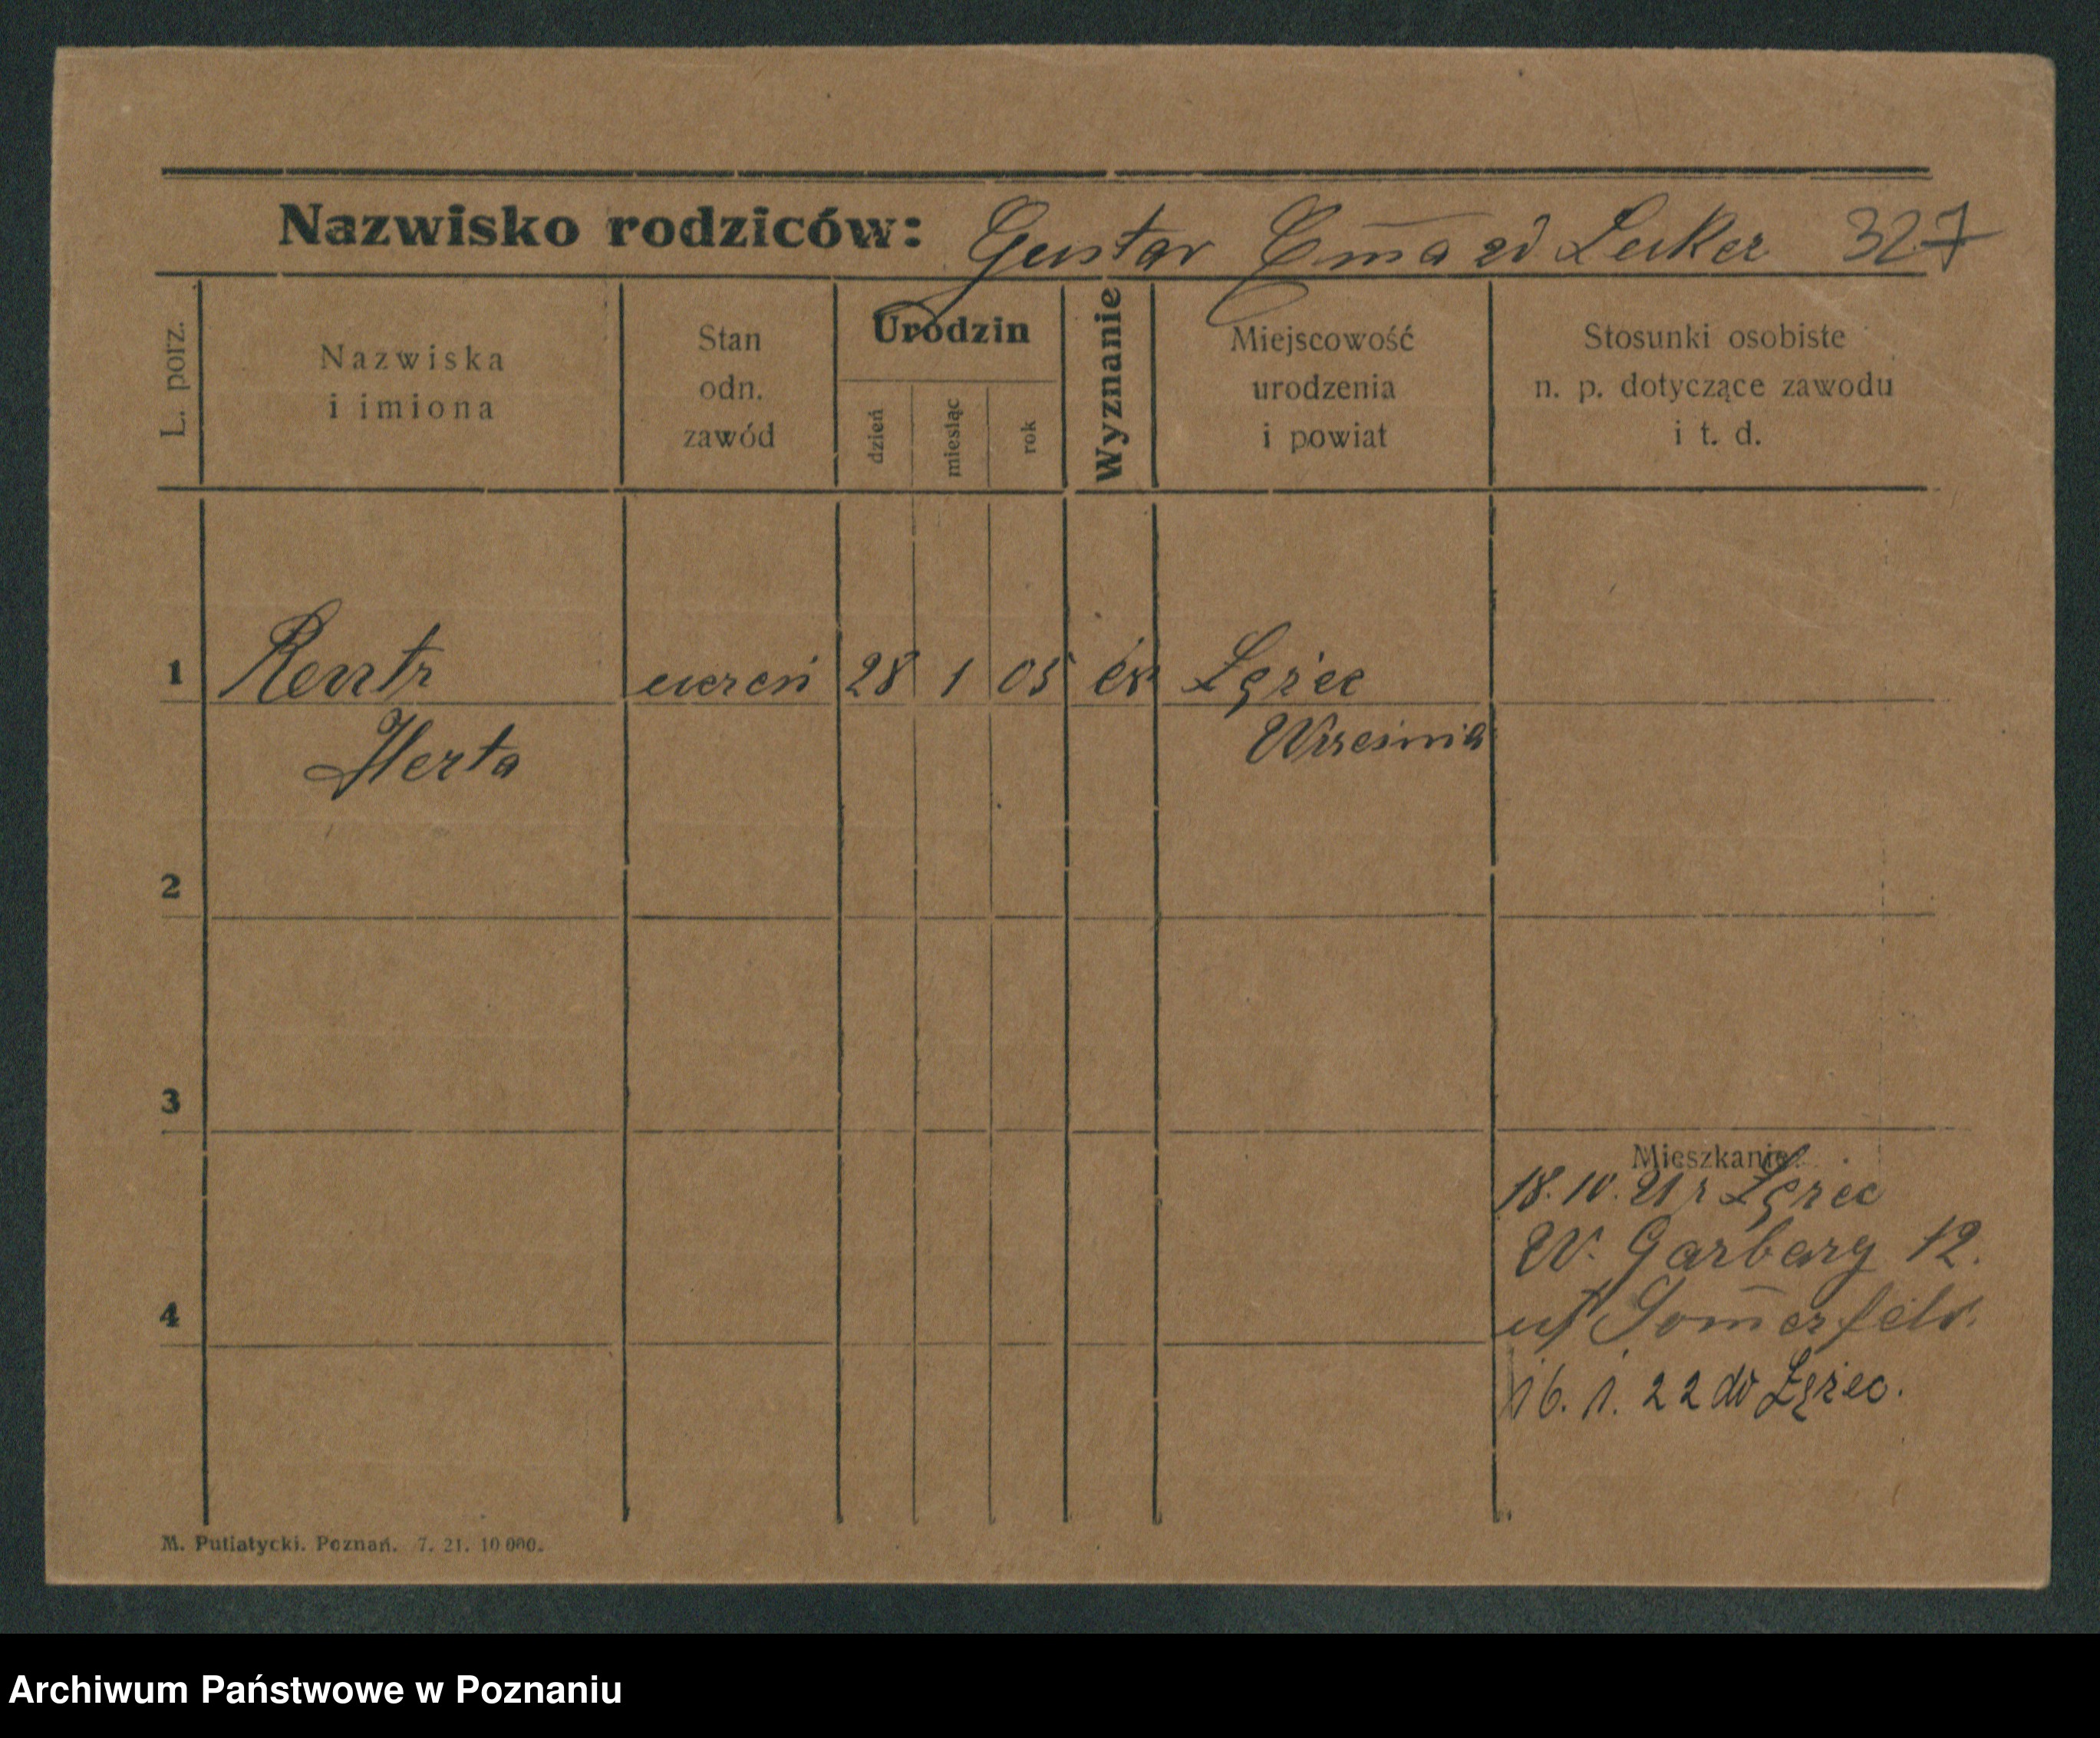 Nazwisko rodziców: Gustav Em̄a zd Leker 327
L. porz.
Nazwiska
i imiona
Stan
odn.
zawód
Urodzin
dzień
miesiąc
rok
Wyznanie
Miejscowość
urodzenia
i powiat
Stosunki osobiste
n. p. dotyczące zawodu
i t. d.
1 uczeń 28 1 05 ew Lężec
Herta Września
2
3
4
Mieszkanie:
18. 10. 21 z Lężec
W. Garbary 12.
u/ Som̄erfeld.
16. 1. 22 do Lężec.
M. Putiatycki. Poznań. 7. 21. 10 000.
Archiwum Państwowe w Poznaniu